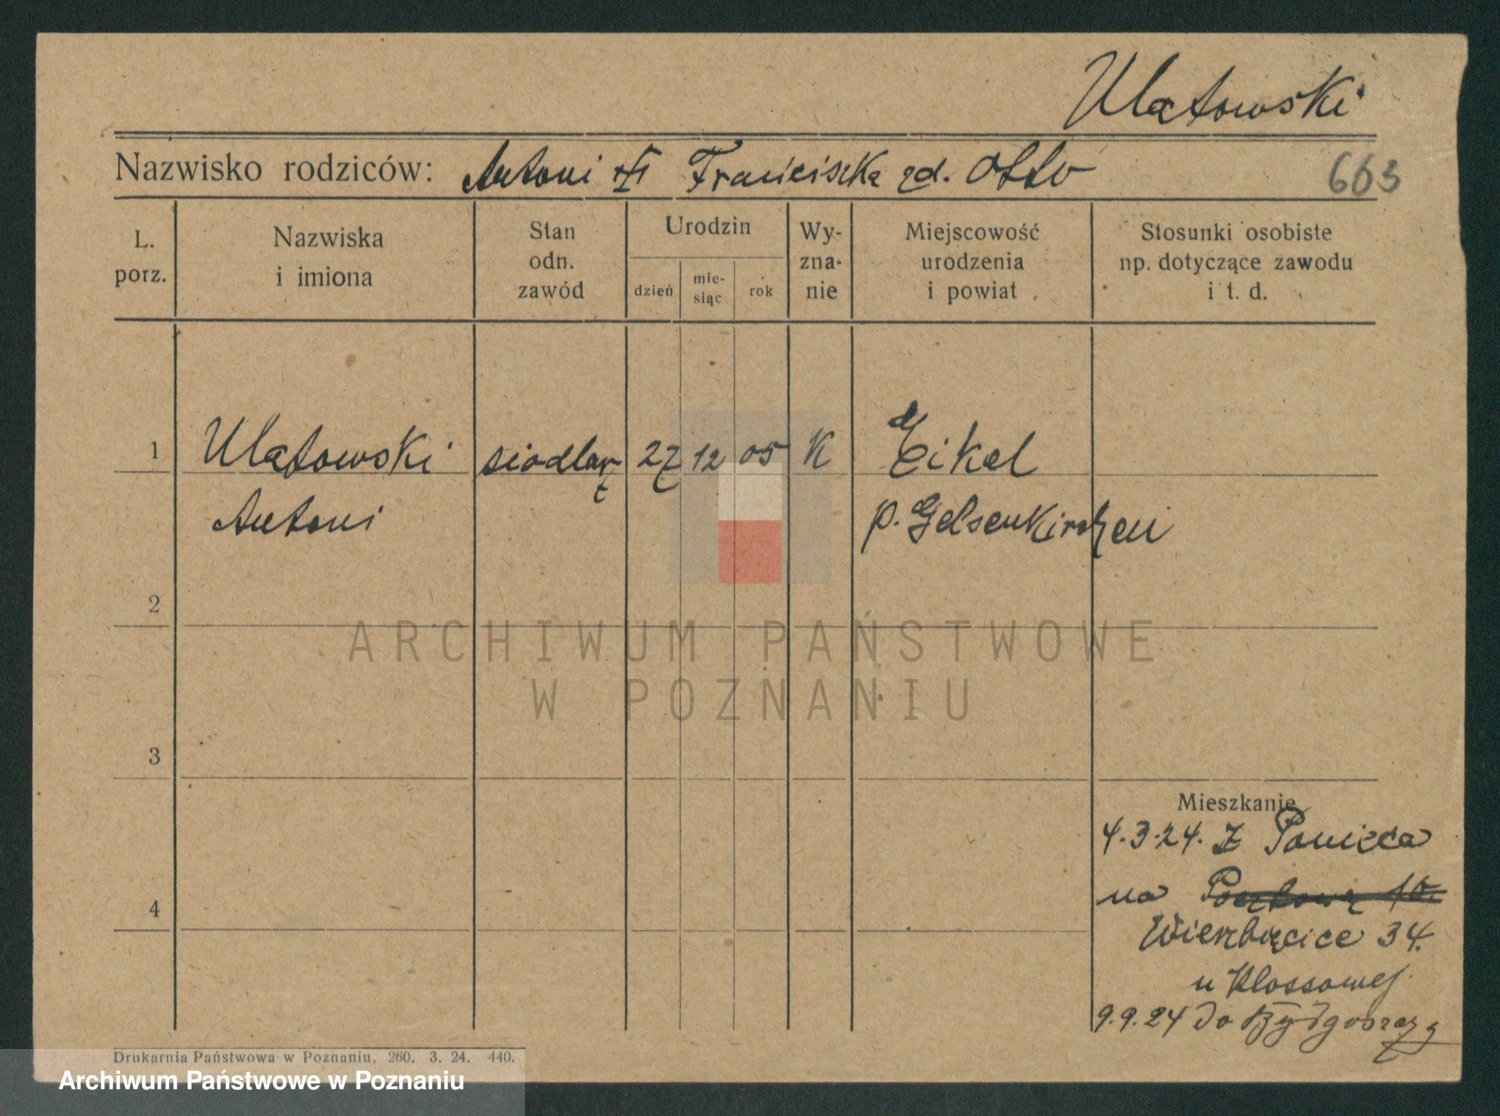 Ulatowski
Nazwisko rodziców: Antoni Franciszka zd. Otto
663
L. porz.
Nazwiska i imiona
Stan odn. zawód
Urodzin
dzień
mie-siąc
rok
Wy-zna-nie
Miejscowość urodzenia i powiat
Stosunki osobiste np. dotyczące zawodu i t. d.
1 Ulatowski siodlarz 27 12 05 K Eikel
Antoni p. Gelsenkirchen
2
ARCHIWUM PAŃSTWOWE
W POZNANIU
3
Mieszkanie
4.3.24. z Ponieca
na Pocztową 10.
4
Wierzbięcice 34.
u Klossowej
9.9.24 do Bydgoszczy
Drukarnia Państwowa w Poznaniu. 260. 3. 24. 440.
Archiwum Państwowe w Poznaniu